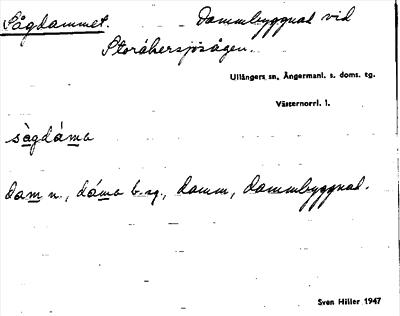 Sågdammet. Dammbyggnad vid
Storåkersjösågen.
Ullångers sn, Ångermanl. s. doms. tg.
Västernorrl. l.
sågdáma
dam n., dáma b.sg., damm, dammbyggnad.
Sven Hiller 1947